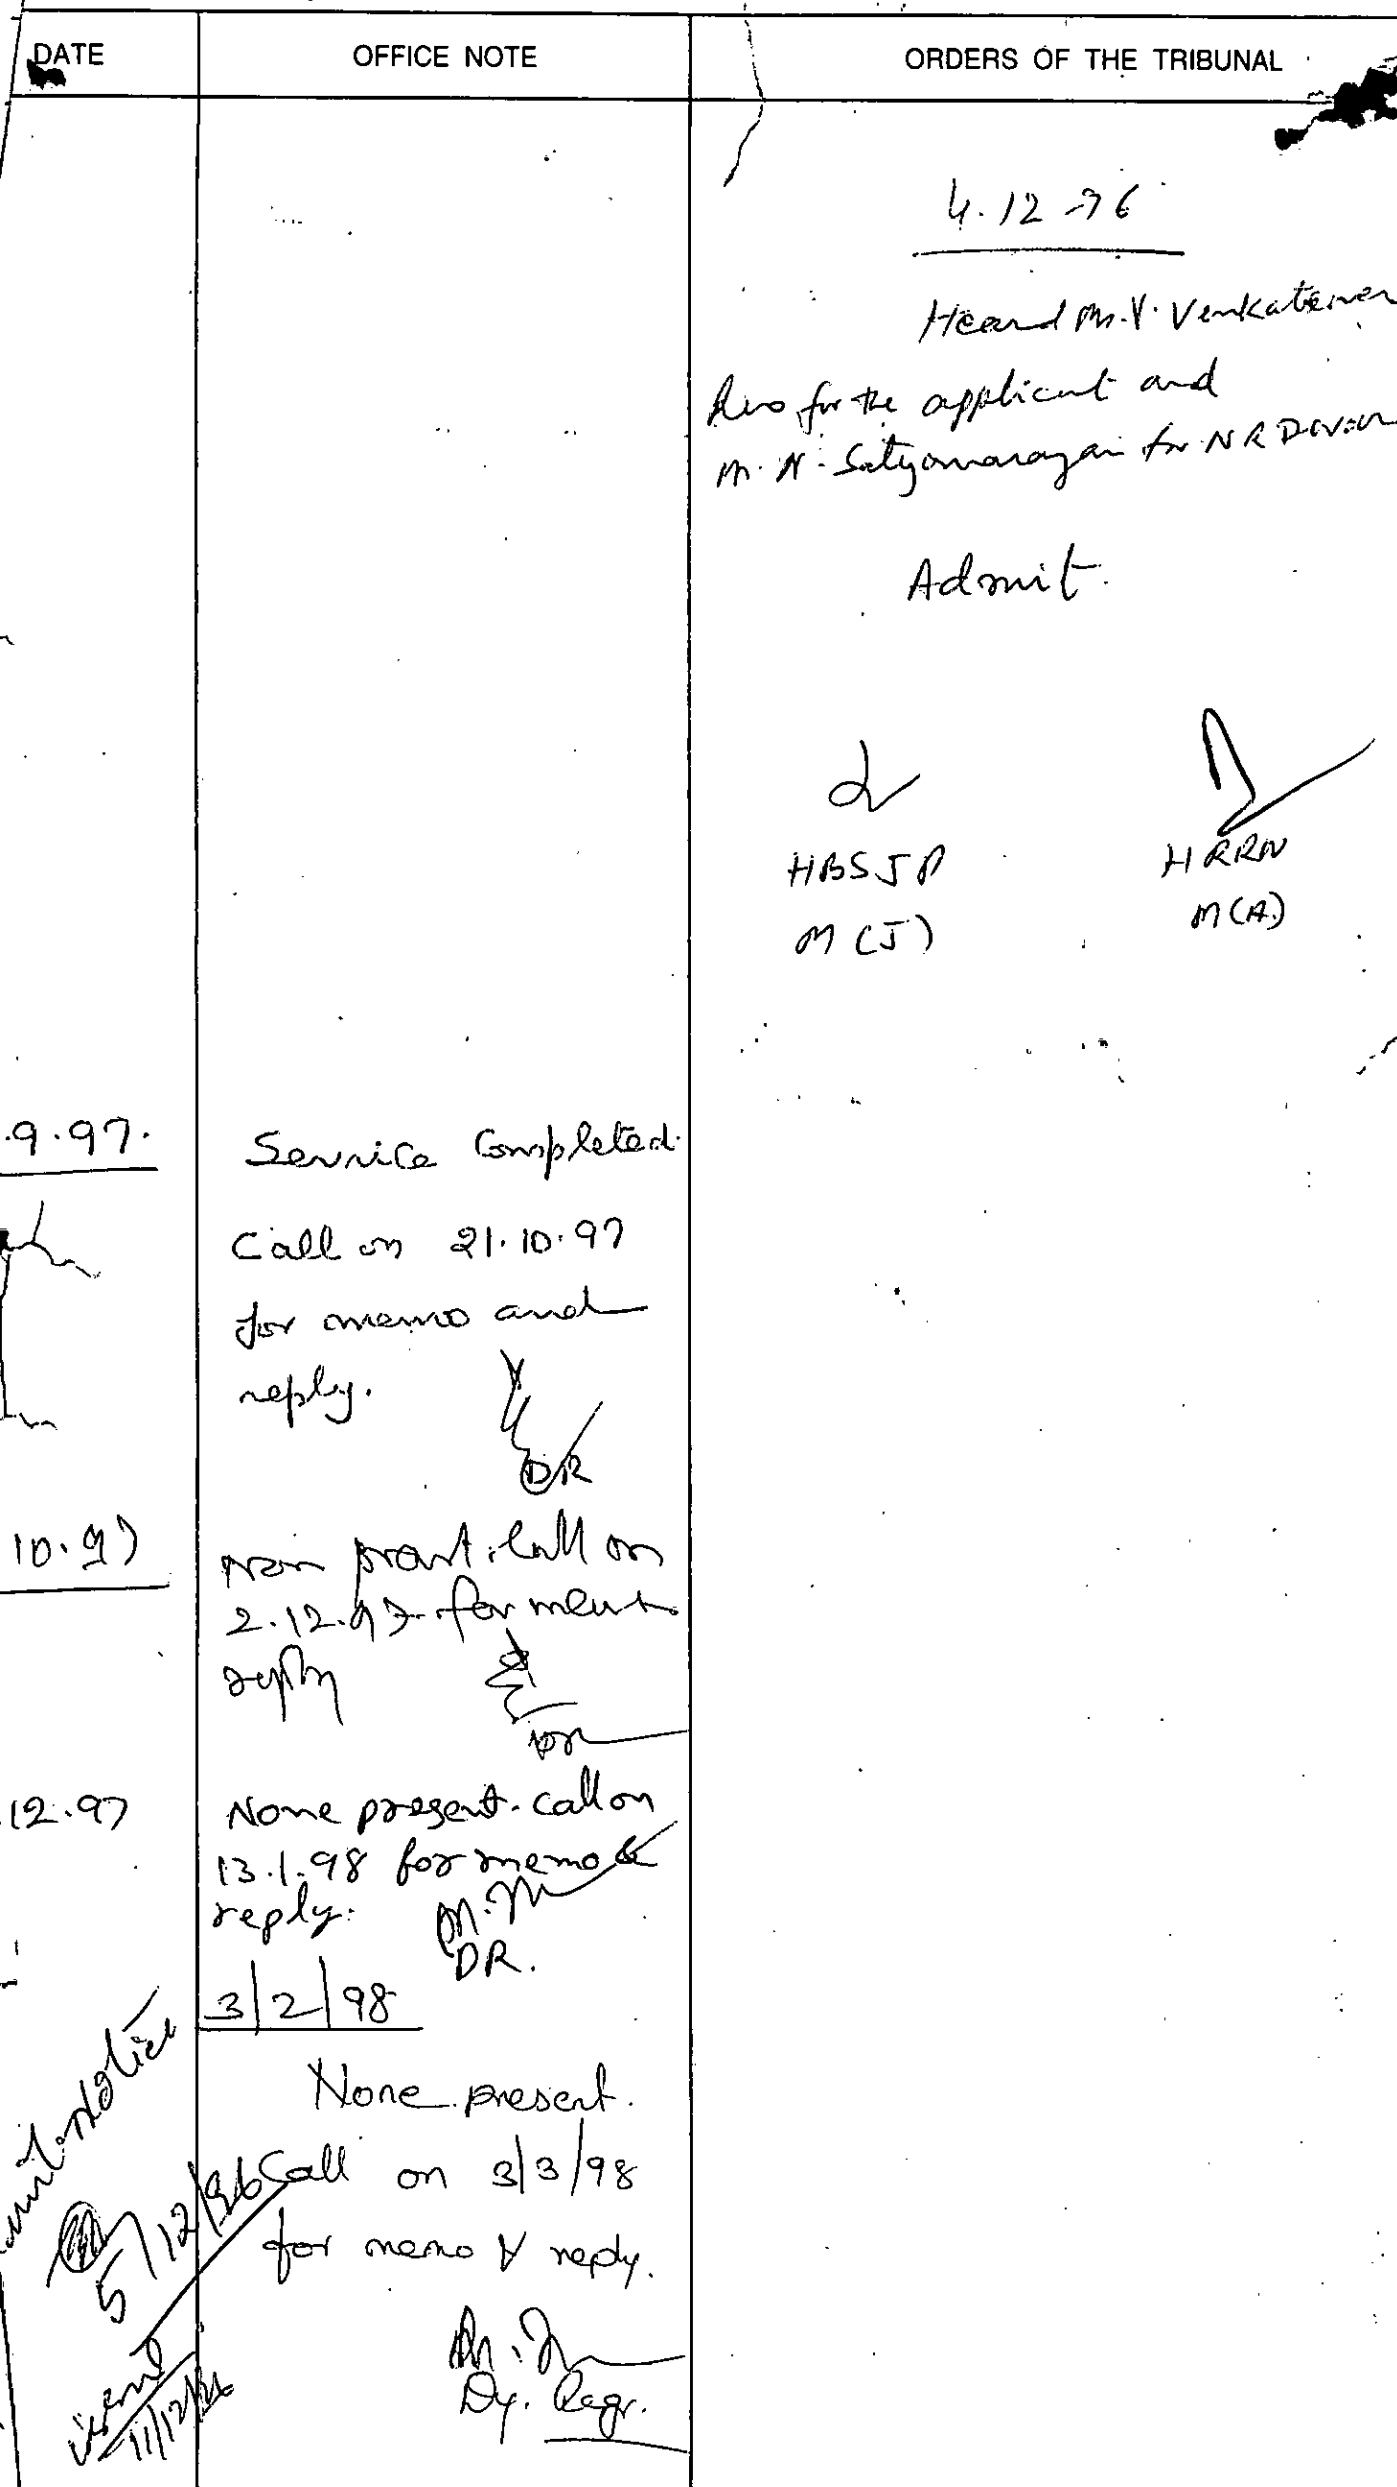 DATE
OFFICE NOTE
ORDERS OF THE TRIBUNAL
4.12.96
Heard Mr. V. Venkateswar
Rao for the applicant and
Mr. N. Satyanarayan for N R Devaraj
Admit.
HBSJP
M(J)
HRRN
M(A)
.9.97.
Service Completed.
Call on 21.10.97
for memo and
reply.
DR
10.97
None present. Call on
2.12.97 for
reply
DR
.12.97
None present. Call on
13.1.98 for memo &
reply.
DR.
3/2/98
None present.
Call on 3/3/98
for memo & reply.
Dy. Regr.
notice
5/12/96
11/12/96